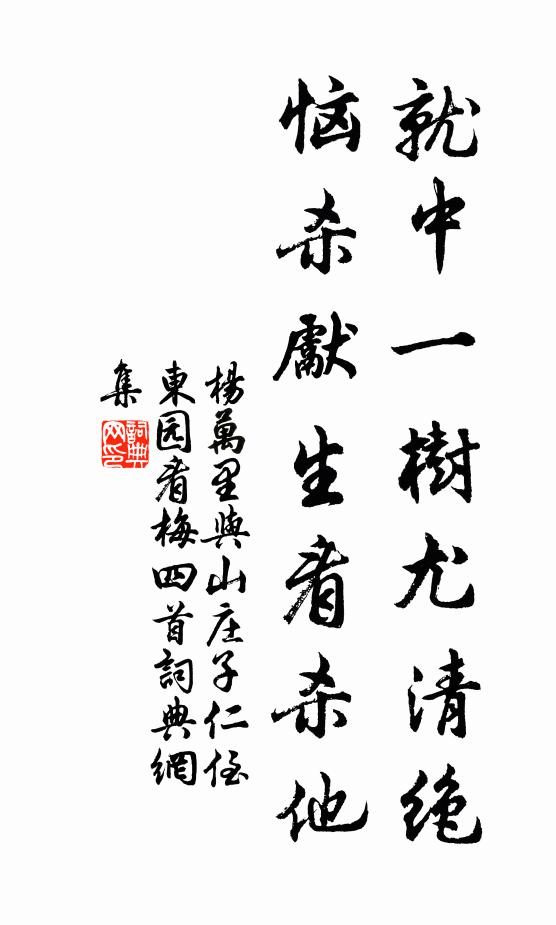 就中一樹尤清绝
恼杀獻生看杀他
楊萬里與山庄子仁侄
東园看梅四首詞典網
集
詞典
网印